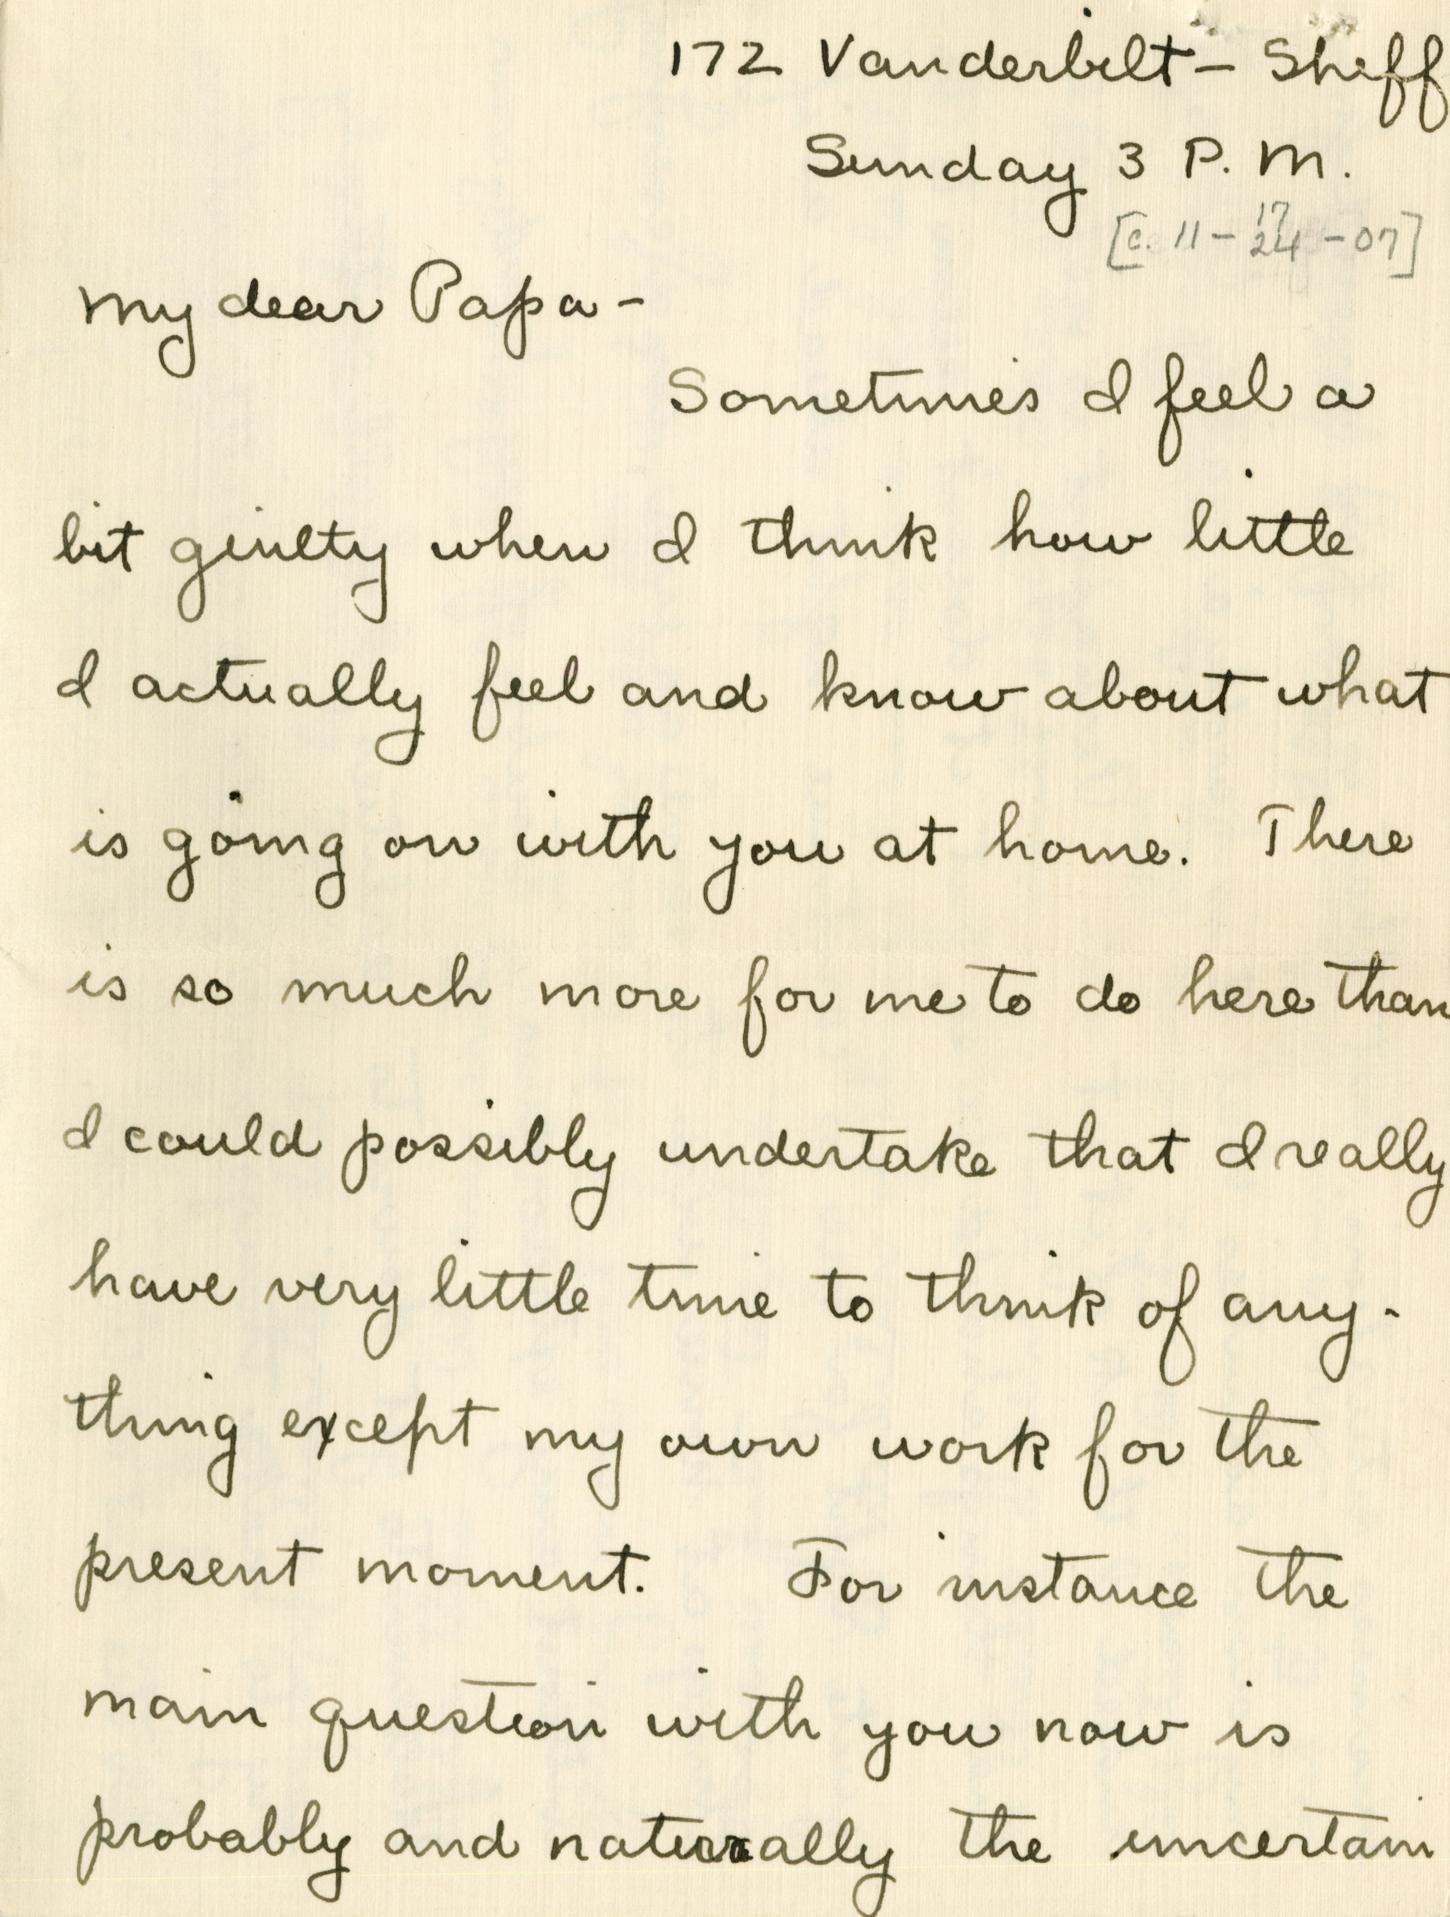 172 Vanderbilt – Sheff
Sunday 3 P. M.
[c. 11 – 17 24 – 07]
My dear Papa –
Sometimes I feel a
bit guilty when I think how little
I actually feel and know about what
is going on with you at home. There
is so much more for me to do here than
I could possibly undertake that I really
have very little time to think of any-
thing except my own work for the
present moment. For instance the
main question with you now is
probably and naturally the uncertain